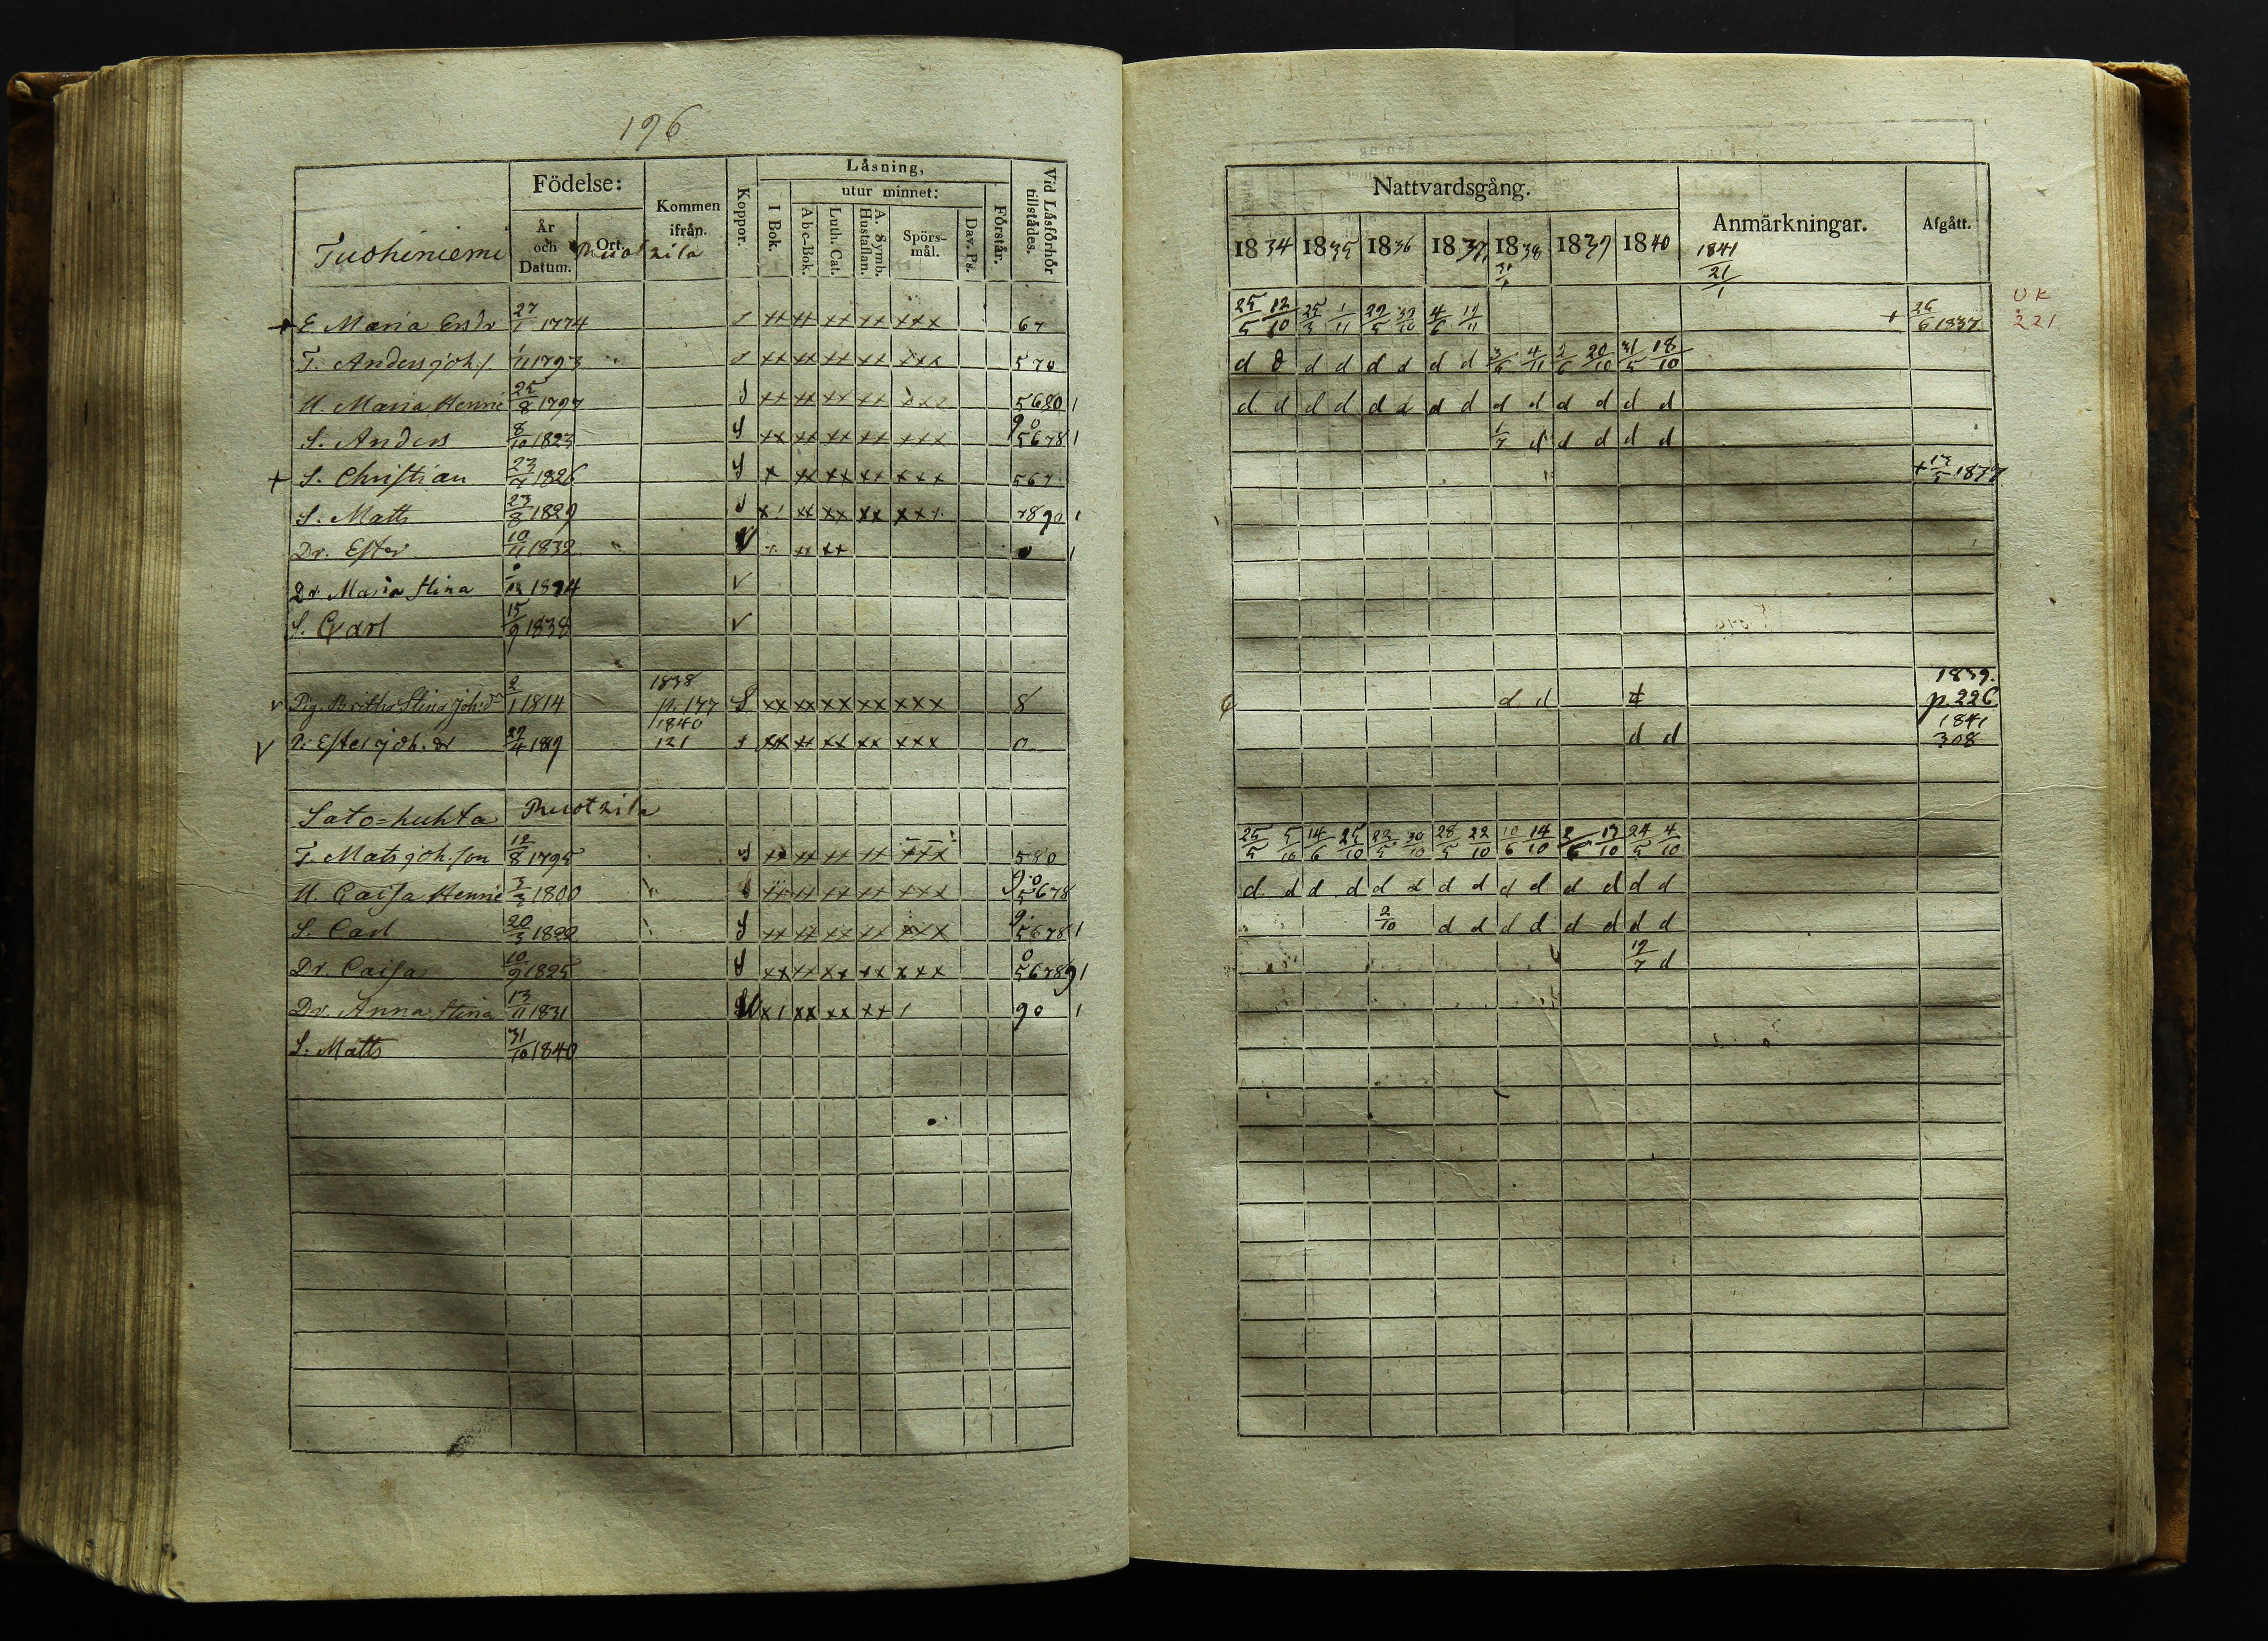 196
Födelse: Kommen ifrån. Koppor. Läsning, Vid Läsförhör tillstädes.
År och Datum. Ort. I Bok. utur minnet: Abc-Bok. Luth. Cat. A. Symb. Hustaflan. Spörs-mål. Dav. Ps. Förstår.
Tuohiniemi
E Maria Ersdr 27/1 1774 xx xx xx xx xxx 67
T. Anders Joh.s. 1/11 1793 xx xx xx xx xxx 570
U. Maria Henric 25/8 1797 xx xx xx xx 5680 1
S. Anders 8/10 1823 xx xx xx xx xxx 90 5678 1
+ S. Christian 23/7 1826 x xx xx xx xxx 567
S. Matts 23/8 1829 x1 xx xx xx xx1 7890 1
Dr. Ester 10/11 1832 xx xx 0 1
Dr Maria Stina 1834
S. Carl 15/9 1838
v Pig. Britha Stina Joh:dr 2/1 1814 1838 p. 177 S xx xx xx xx xxx 8
v P. Ester Joh.dr 27/4 1819 1840 121 xx xx xx xx xxx 0
Sato=huhta Ruotzila
T. Mats Joh.son 12/8 1795 xx xx xx xx xxx 580
U. Caisa Henric 3/3 1800 xx xx xx xx xxx 90 5678
S. Carl 20/3 1822 xx xx xx xx xxx 9 5678 1
Dr. Caisa 10/9 1825 xx xx xx xx xxx 0 56789 1
Dr. Anna Stina 13/11 1831 x1 xx xx xx 1 90 1
S. Matts 31/10 1840
Nattvardsgång. Anmärkningar. Afgått.
1834 1835 1836 1837 1838 1839 1840 1841 21/1
25/5 12/10 25/3 1/11 22/5 30/10 4/6 12/11 + 26/6 1837 UK 221
d d d d d d d d 3/6 4/11 2/6 20/10 31/5 18/10
d d d d d d d d d d d d d d
1/7 d d d d d
+ 13/5 1837
d d 1839. p. 226
d d 1841 308
25/5 5/10 14/6 25/10 22/5 30/10 28/5 22/10 10/6 14/10 2/6 13/10 24/5 4/10
d d d d d d d d d d d d d d
2/10 d d d d d d d d
12/7 d